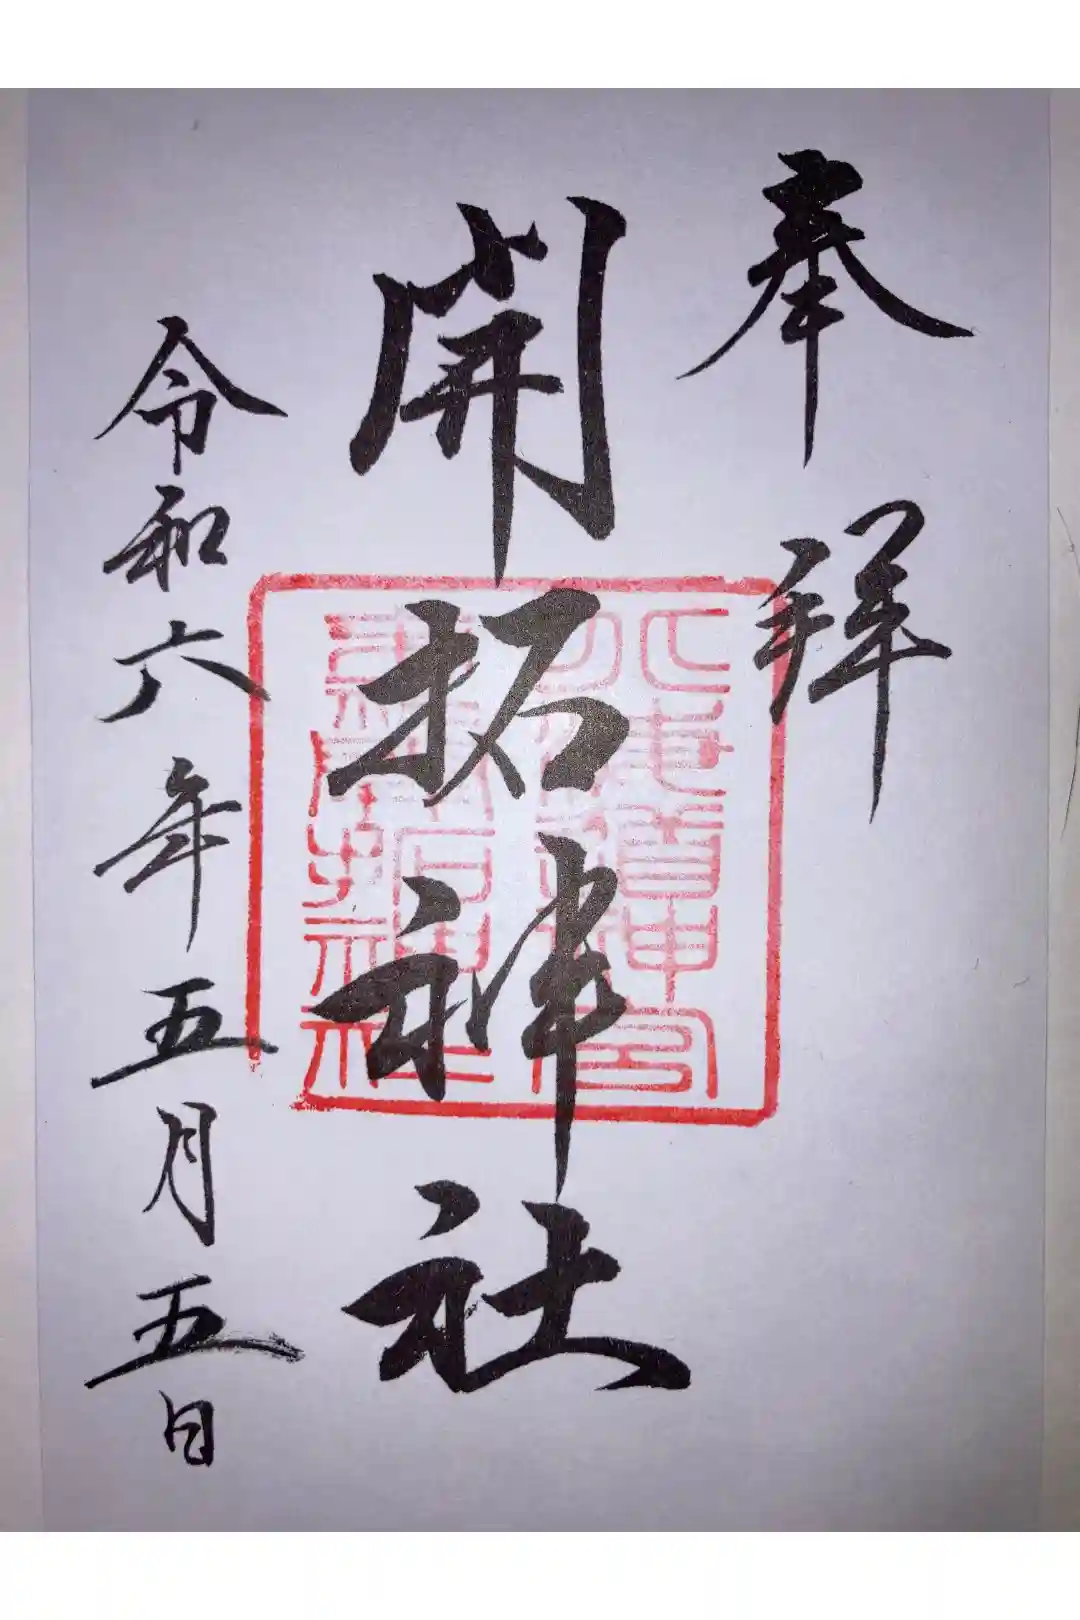 奉拝
開拓神社
北海道神宮
末社開拓神社
令和六年五月五日